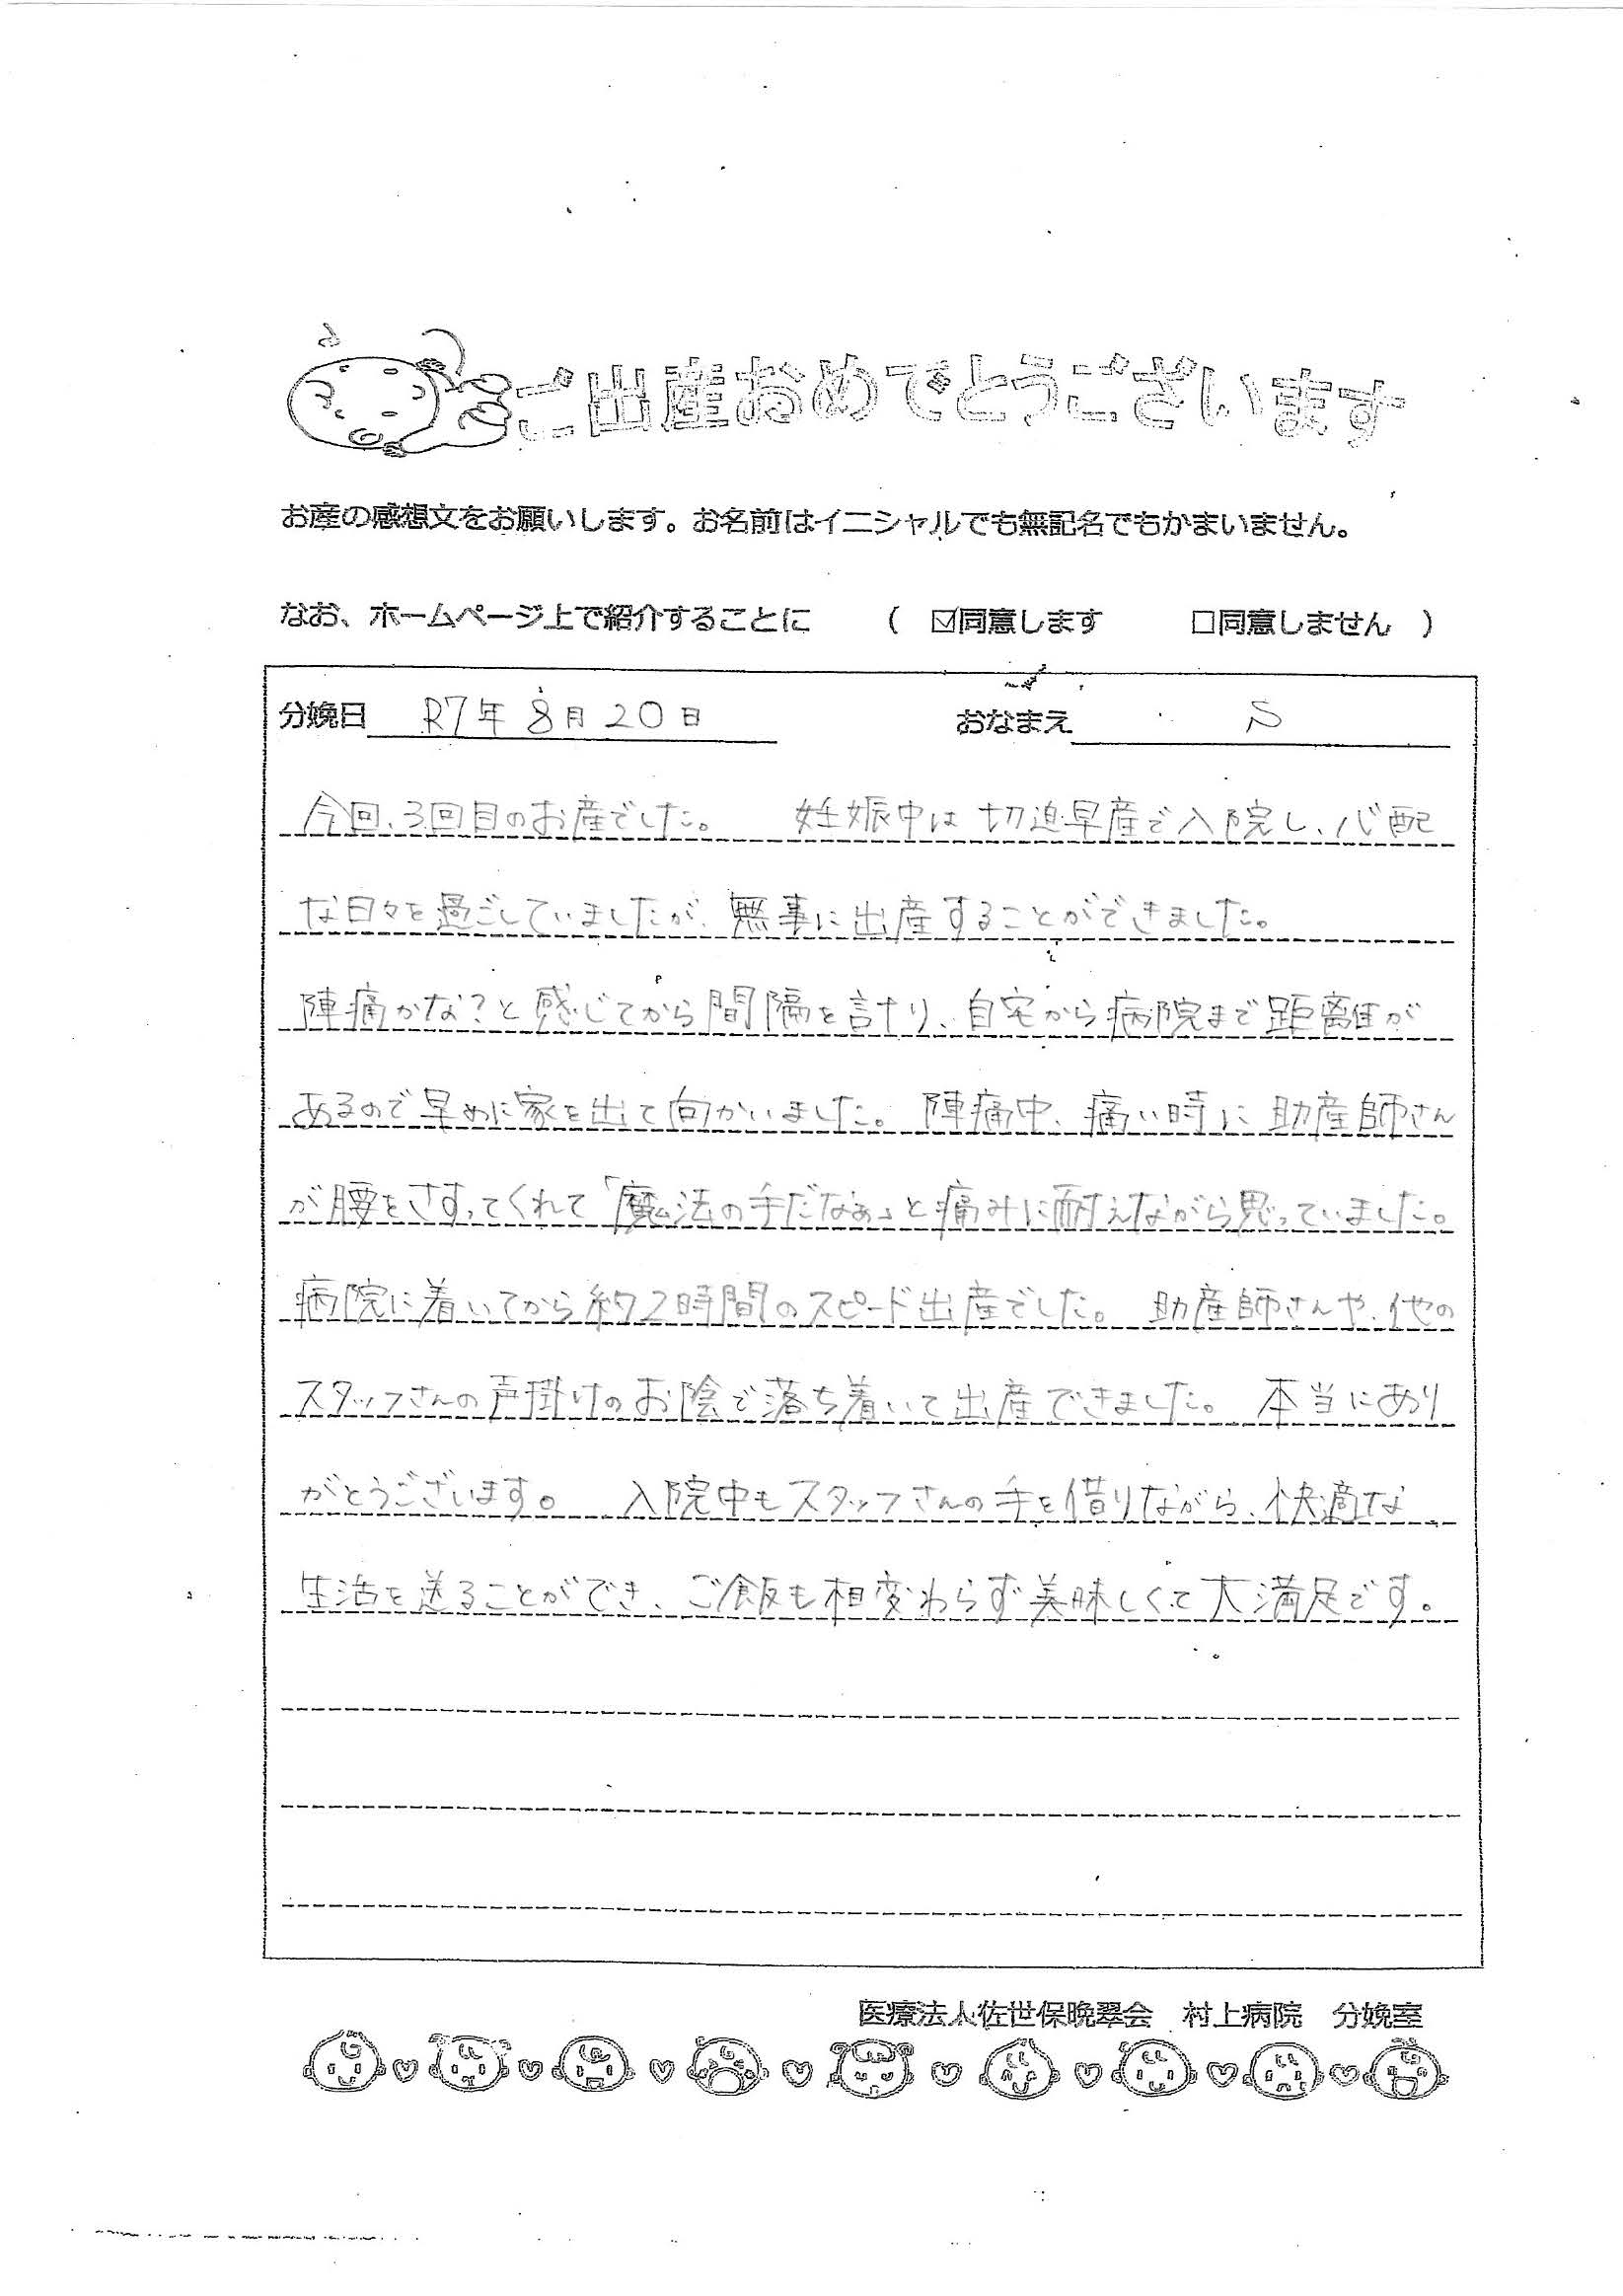 ご出産おめでとうございます
お産の感想文をお願いします。お名前はイニシャルでも無記名でもかまいません。
なお、ホームページ上で紹介することに ( ☑同意します □同意しません )
分娩日 R7年 8月 20日 おなまえ S
今回、3回目のお産でした。 妊娠中は切迫早産で入院し、心配
な日々を過ごしていましたが、無事に出産することができました。
陣痛かな?と感じてから間隔を計り、自宅から病院まで距離が
あるので早めに家を出て向かいました。陣痛中、痛い時に助産師さん
が腰をさすってくれて「魔法の手だなぁ」と痛みに耐えながら思っていました。
病院に着いてから約2時間のスピード出産でした。 助産師さんや、他の
スタッフさんの声掛けのお陰で落ち着いて出産できました。 本当にあり
がとうございます。 入院中もスタッフさんの手を借りながら、快適な
生活を送ることができ、ご飯も相変わらず美味しくて大満足です。
医療法人佐世保晩翠会 村上病院 分娩室